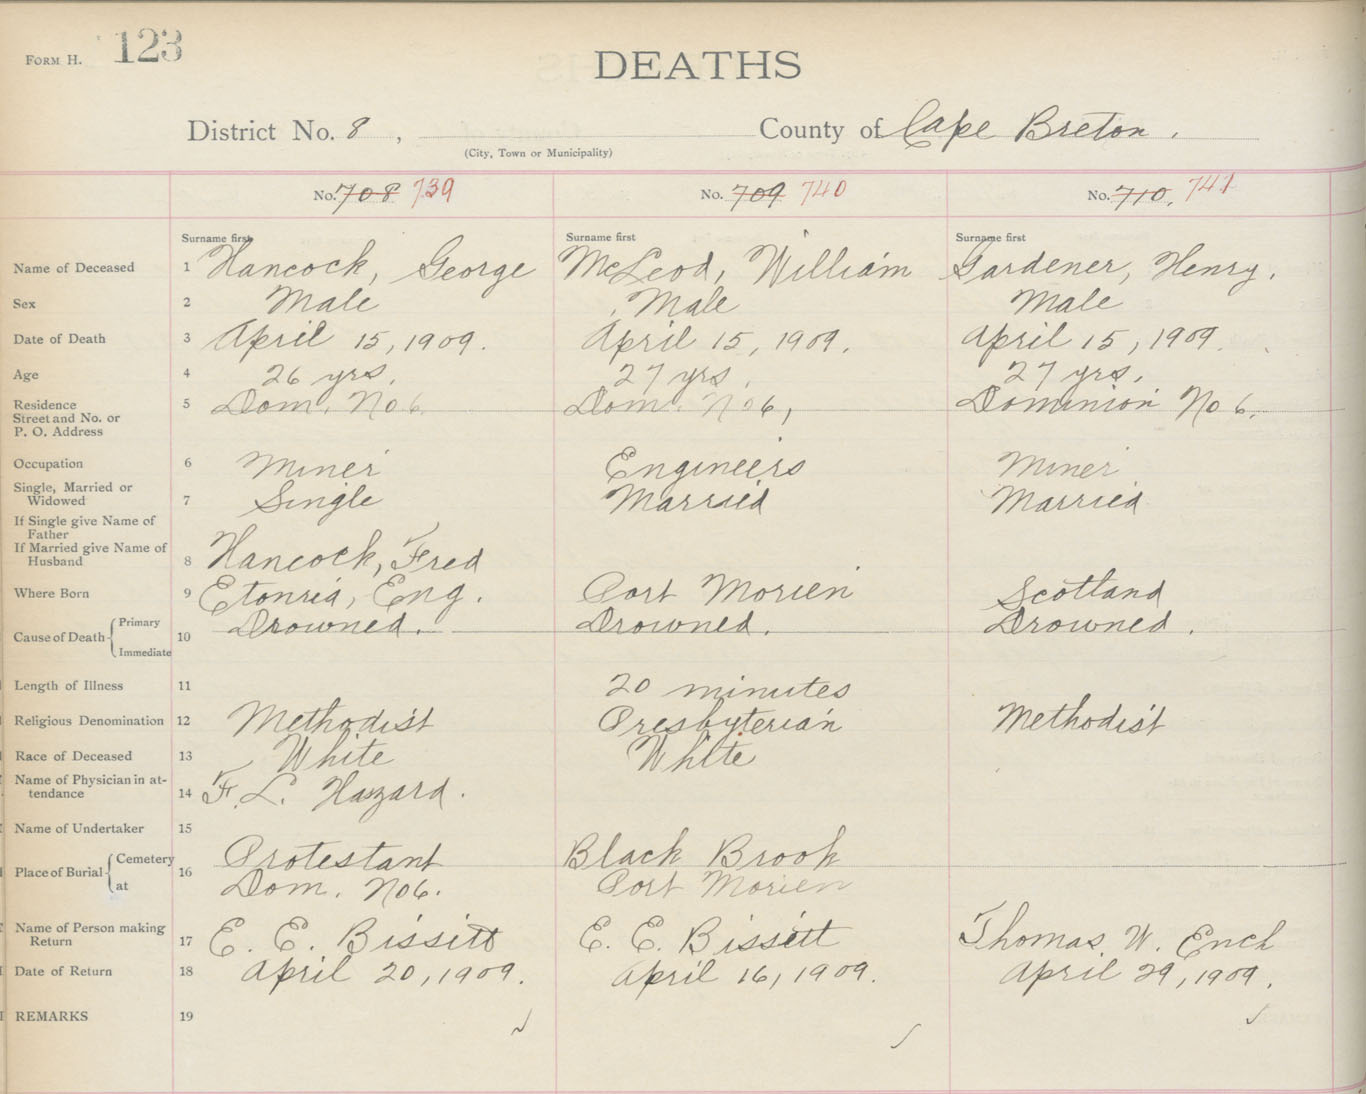 FORM H. 123
DEATHS
District No. 8 , County of Cape Breton.
(City, Town or Municipality)
No. 708 739 No. 709 740 No. 710. 741
Surname first Surname first Surname first
Name of Deceased 1 Hancock, George McLeod, William Gardener, Henry.
Sex 2 Male Male Male
Date of Death 3 April 15, 1909. April 15, 1909. April 15, 1909.
Age 4 26 yrs. 27 yrs. 27 yrs.
Residence 5 Dom. No 6 Dom. No 6, Dominion No 6.
Street and No. or
P. O. Address
Occupation 6 Miner Engineers Miner
Single, Married or
Widowed 7 Single Married Married
If Single give Name of
Father
If Married give Name of
Husband 8 Hancock, Fred
Where Born 9 Etonria, Eng. Port Morien Scotland
Cause of Death Primary 10 Drowned. Drowned. Drowned.
Immediate
Length of Illness 11 20 minutes
Religious Denomination 12 Methodist Presbyterian Methodist
Race of Deceased 13 White White
Name of Physician in at-
tendance 14 F. L. Haszard.
Name of Undertaker 15
Place of Burial Cemetery 16 Protestant Black Brook
at Dom. No 6. Port Morien
Name of Person making
Return 17 E. E. Bissett E. E. Bissett Thomas W. Ench
Date of Return 18 April 20, 1909. April 16, 1909. April 29, 1909.
REMARKS 19